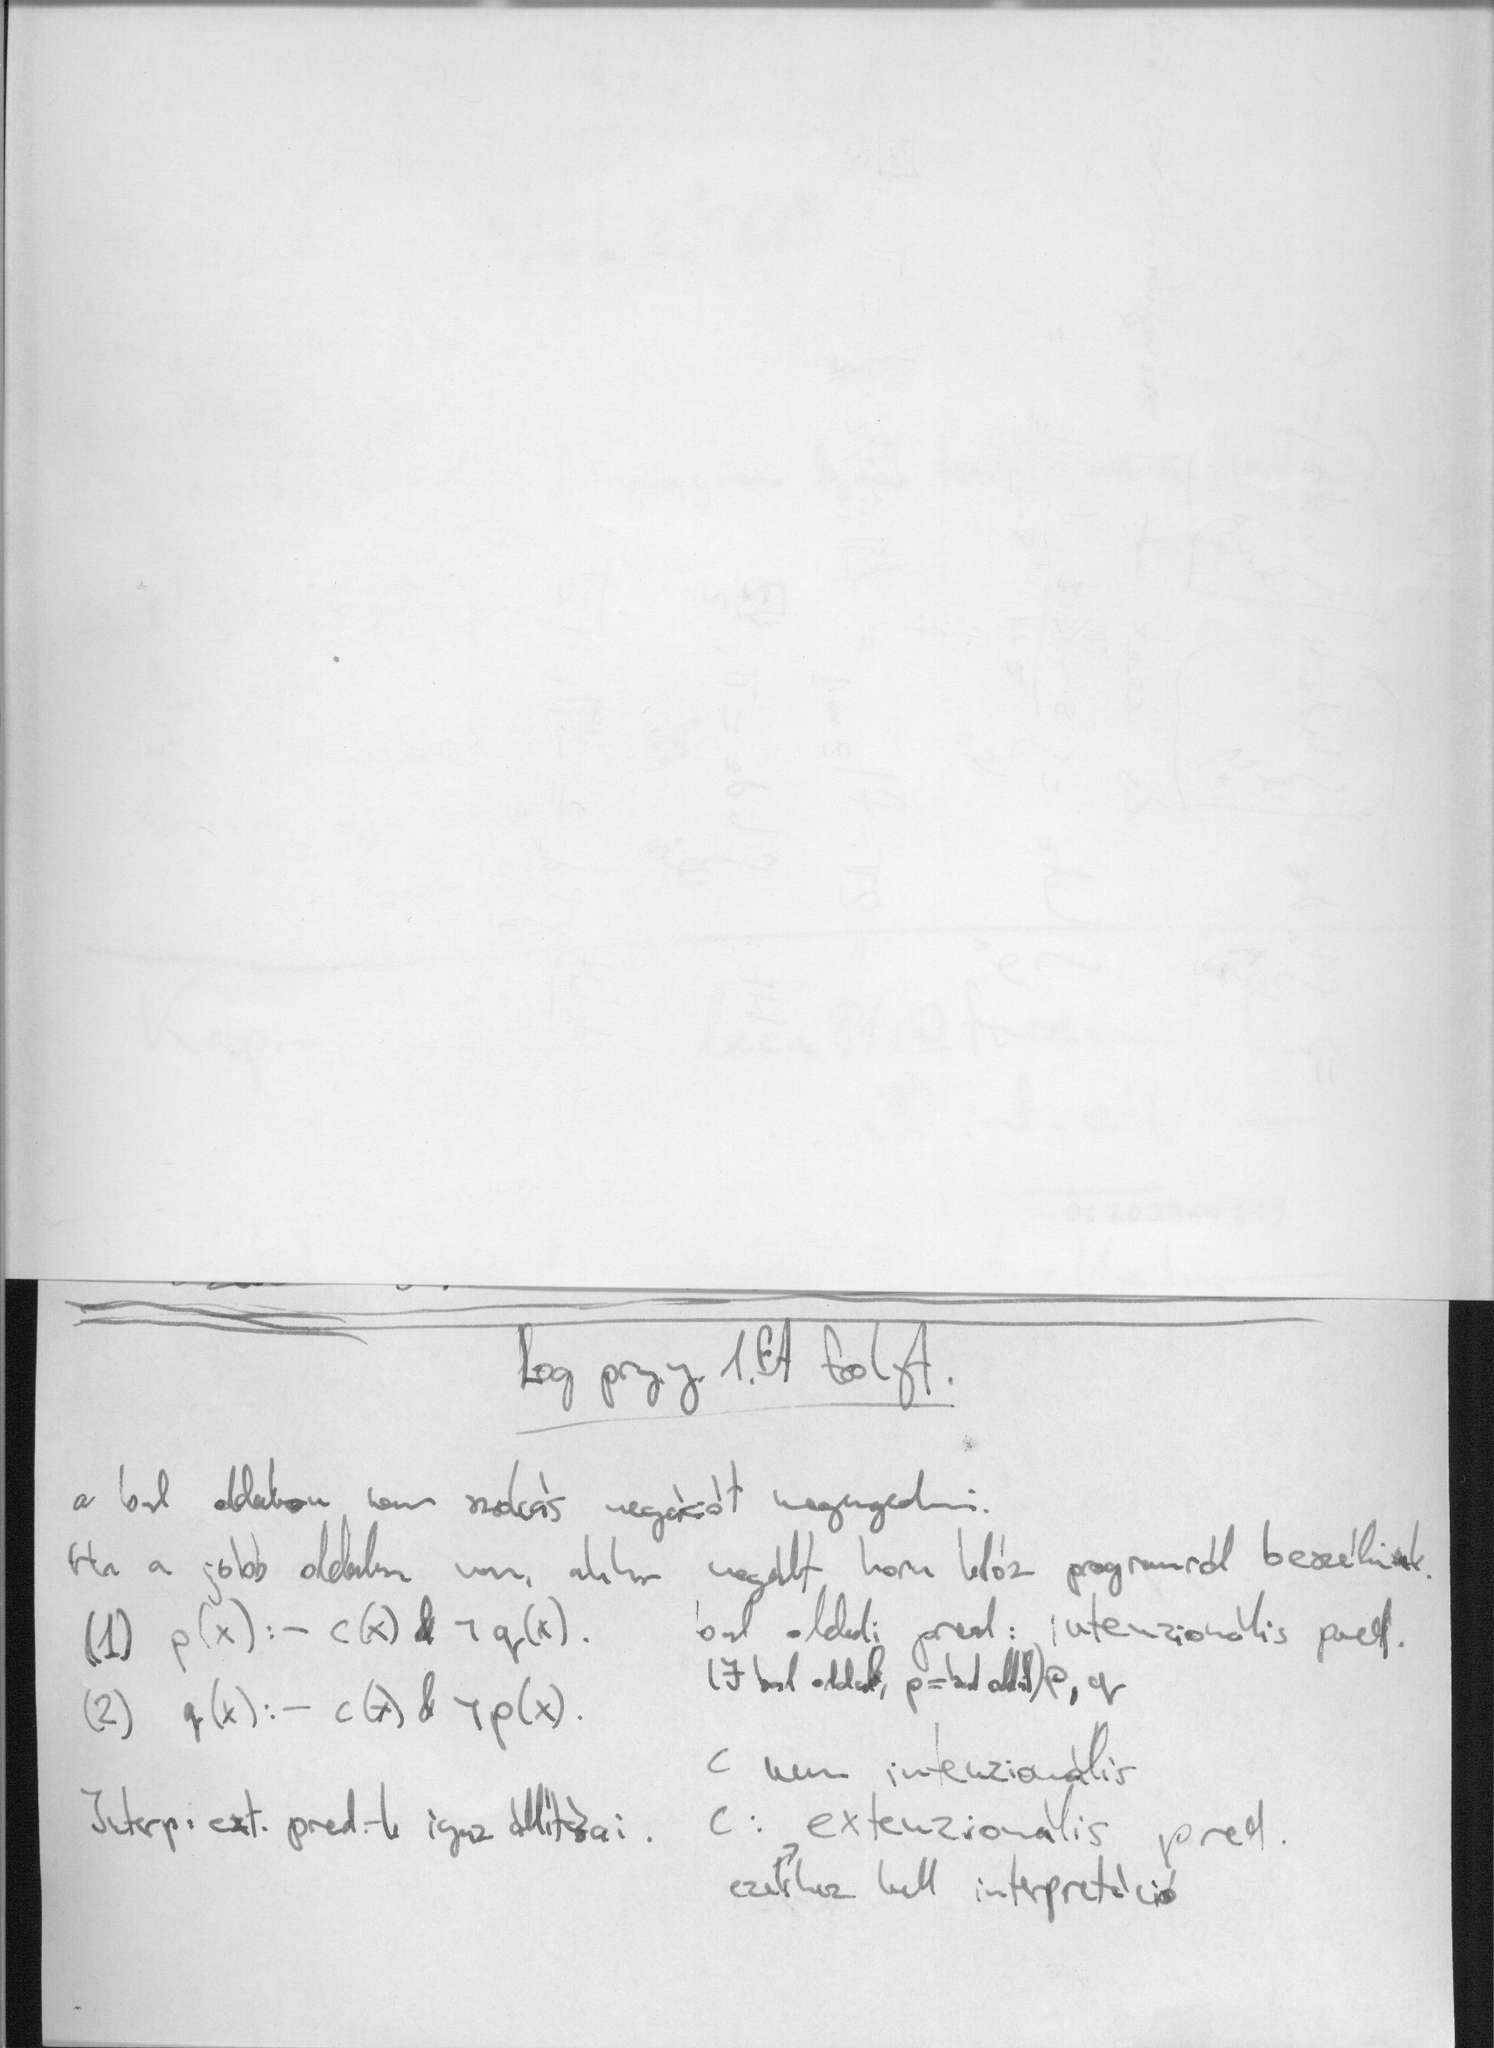 Log prg. 1. EA folyt.
a bal oldalon nem szokás negációt megengedni.
Ha a jobb oldalon van, akkor negált horn klóz programról beszélünk.
(1) p(x):- c(x) & ¬q(x).
bal oldali pred: intenzionális pred.
(∃ bal oldal, p = bal oldal) p, q
(2) q(x):- c(x) & ¬p(x).
c nem intenzionális
Interp: ext. pred.-k igaz állításai.
c: extenzionális pred.
ezekhez kell interpretáció